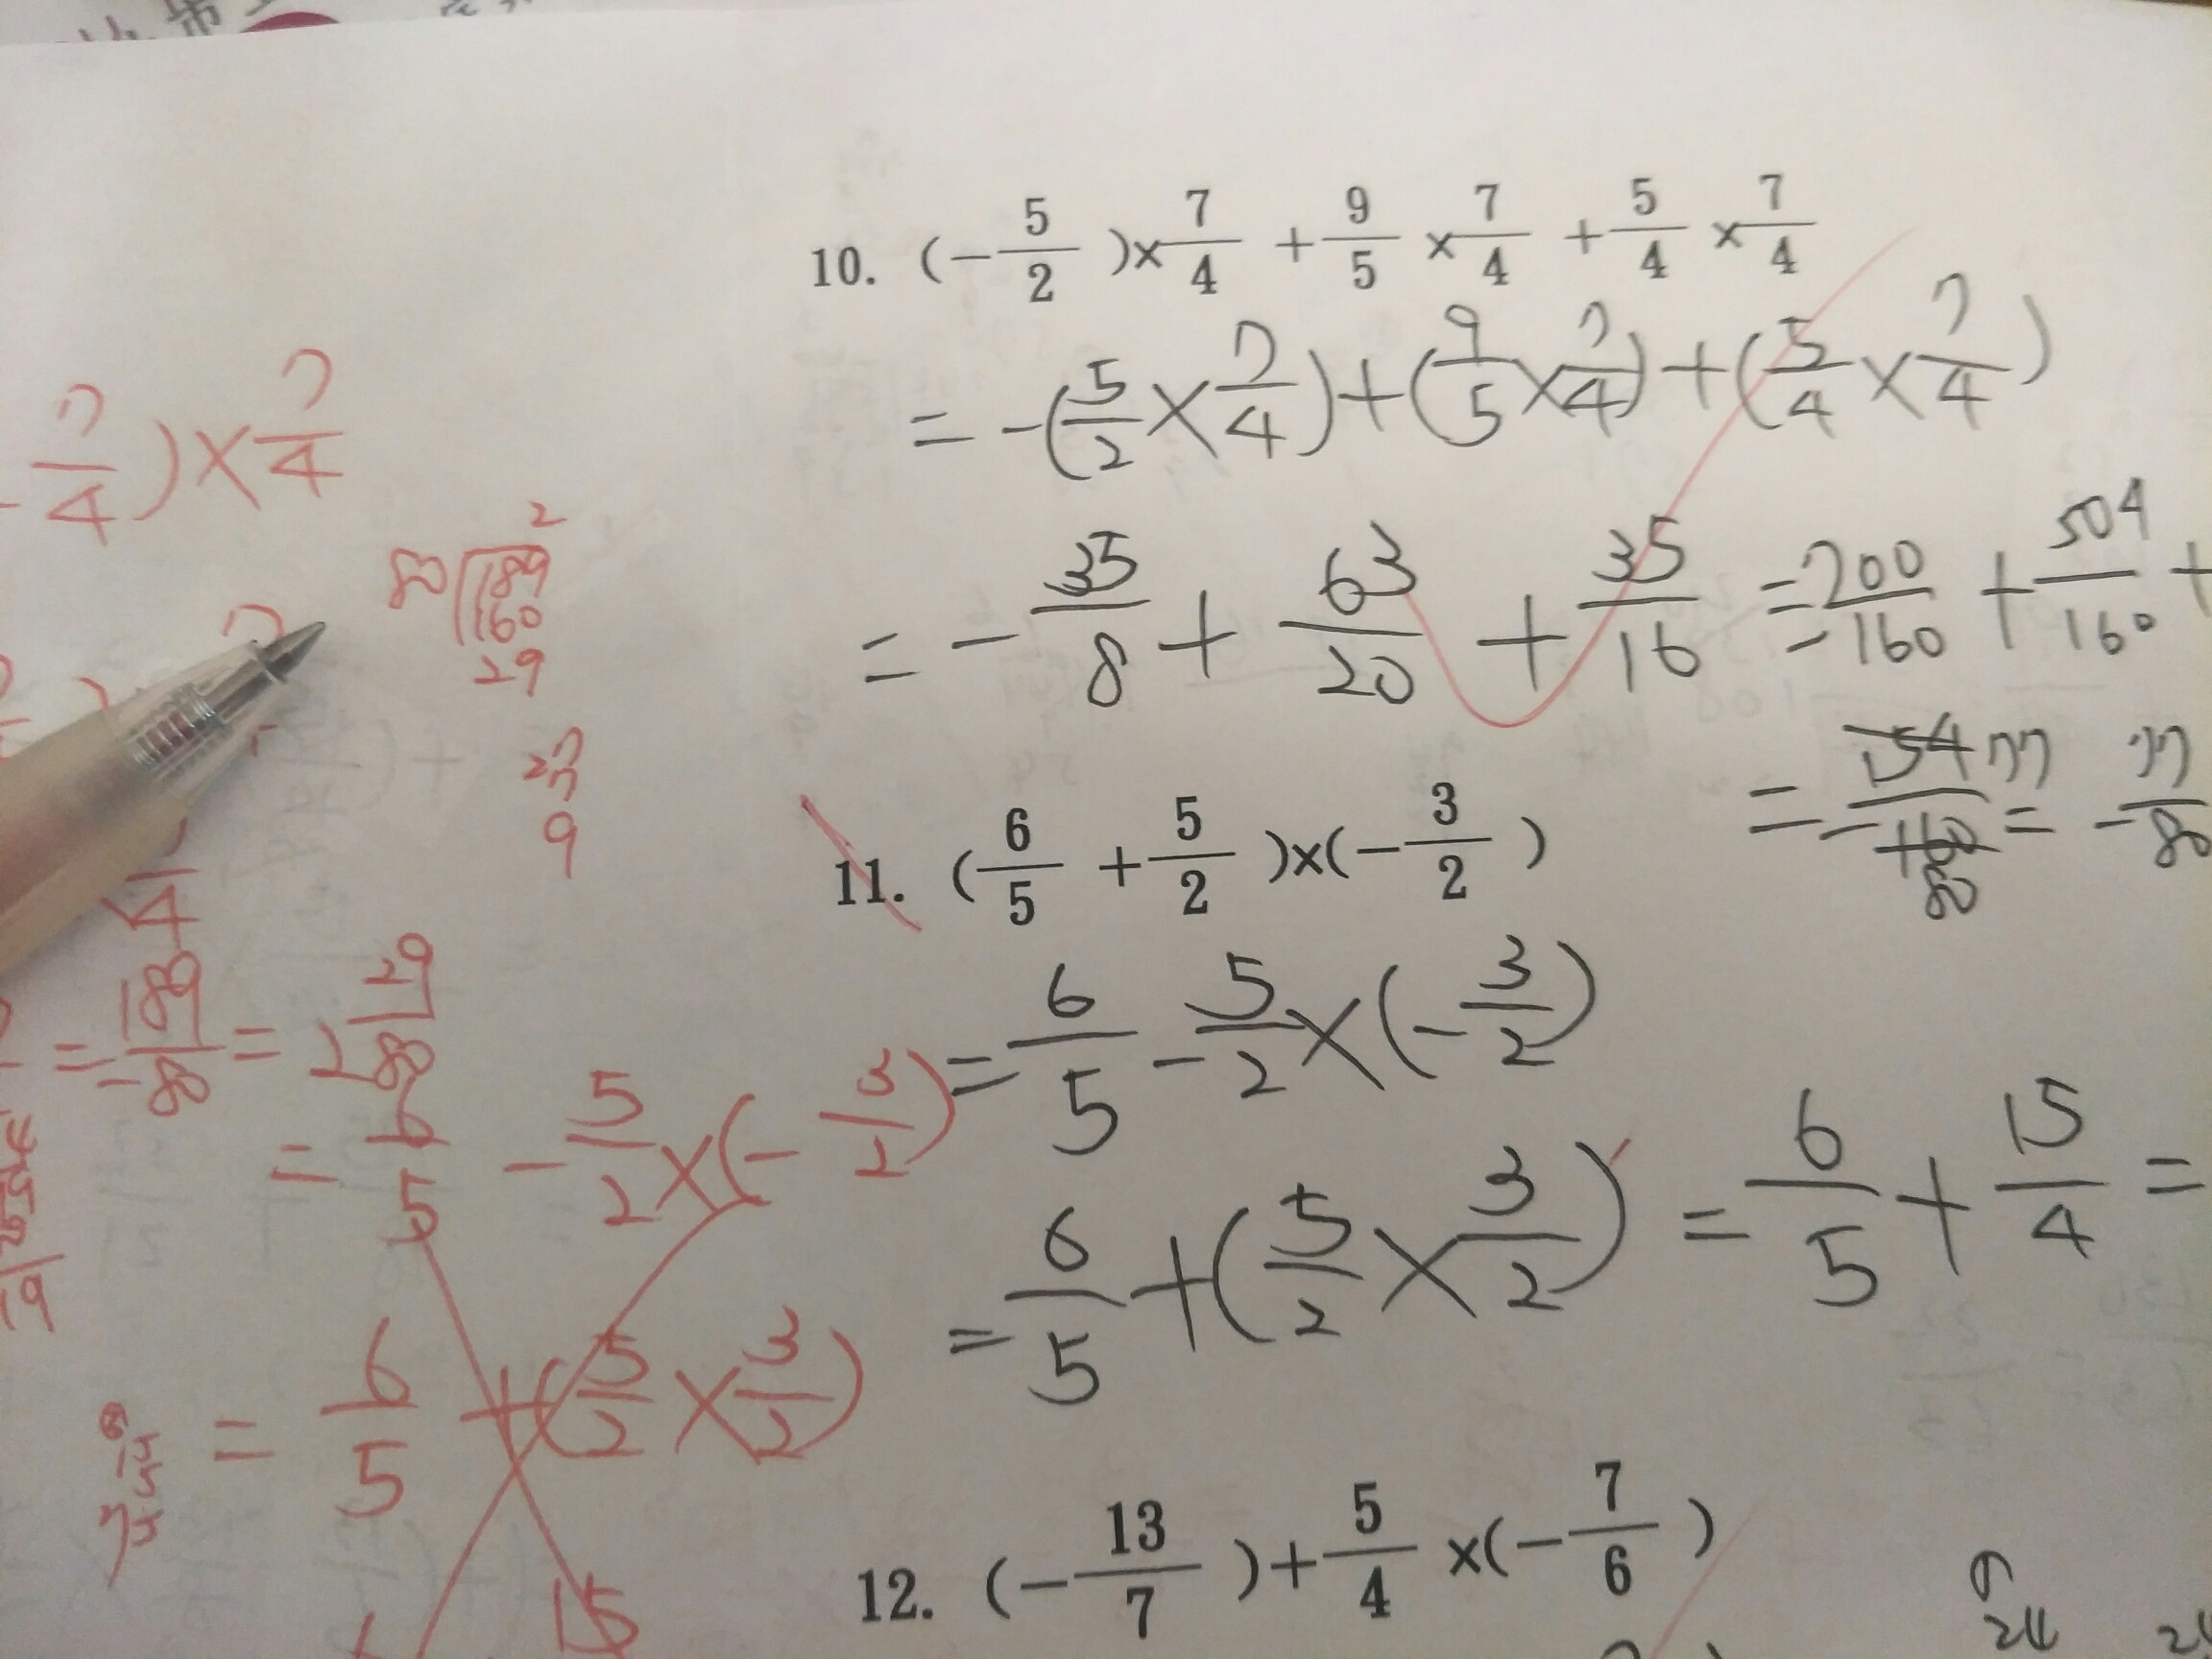 10. (-5/2)×7/4+9/5×7/4+5/4×7/4
=-(5/2×7/4)+(9/5×7/4)+(5/4×7/4)
=-35/8+63/20+35/16=-700/160+504/160+
=-154/160 77/80=-77/80
11. (6/5+5/2)×(-3/2)
=6/5-5/2×(-3/2)
=6/5+(5/2×3/2)=6/5+15/4=
12. (-13/7)+5/4×(-7/6)
7/4)×7/4
2
80 189
160
29
27
9
=-189/80=2 29/80
=6/5-5/2×(-3/2)
=6/5+(5/2×3/2)
15
24